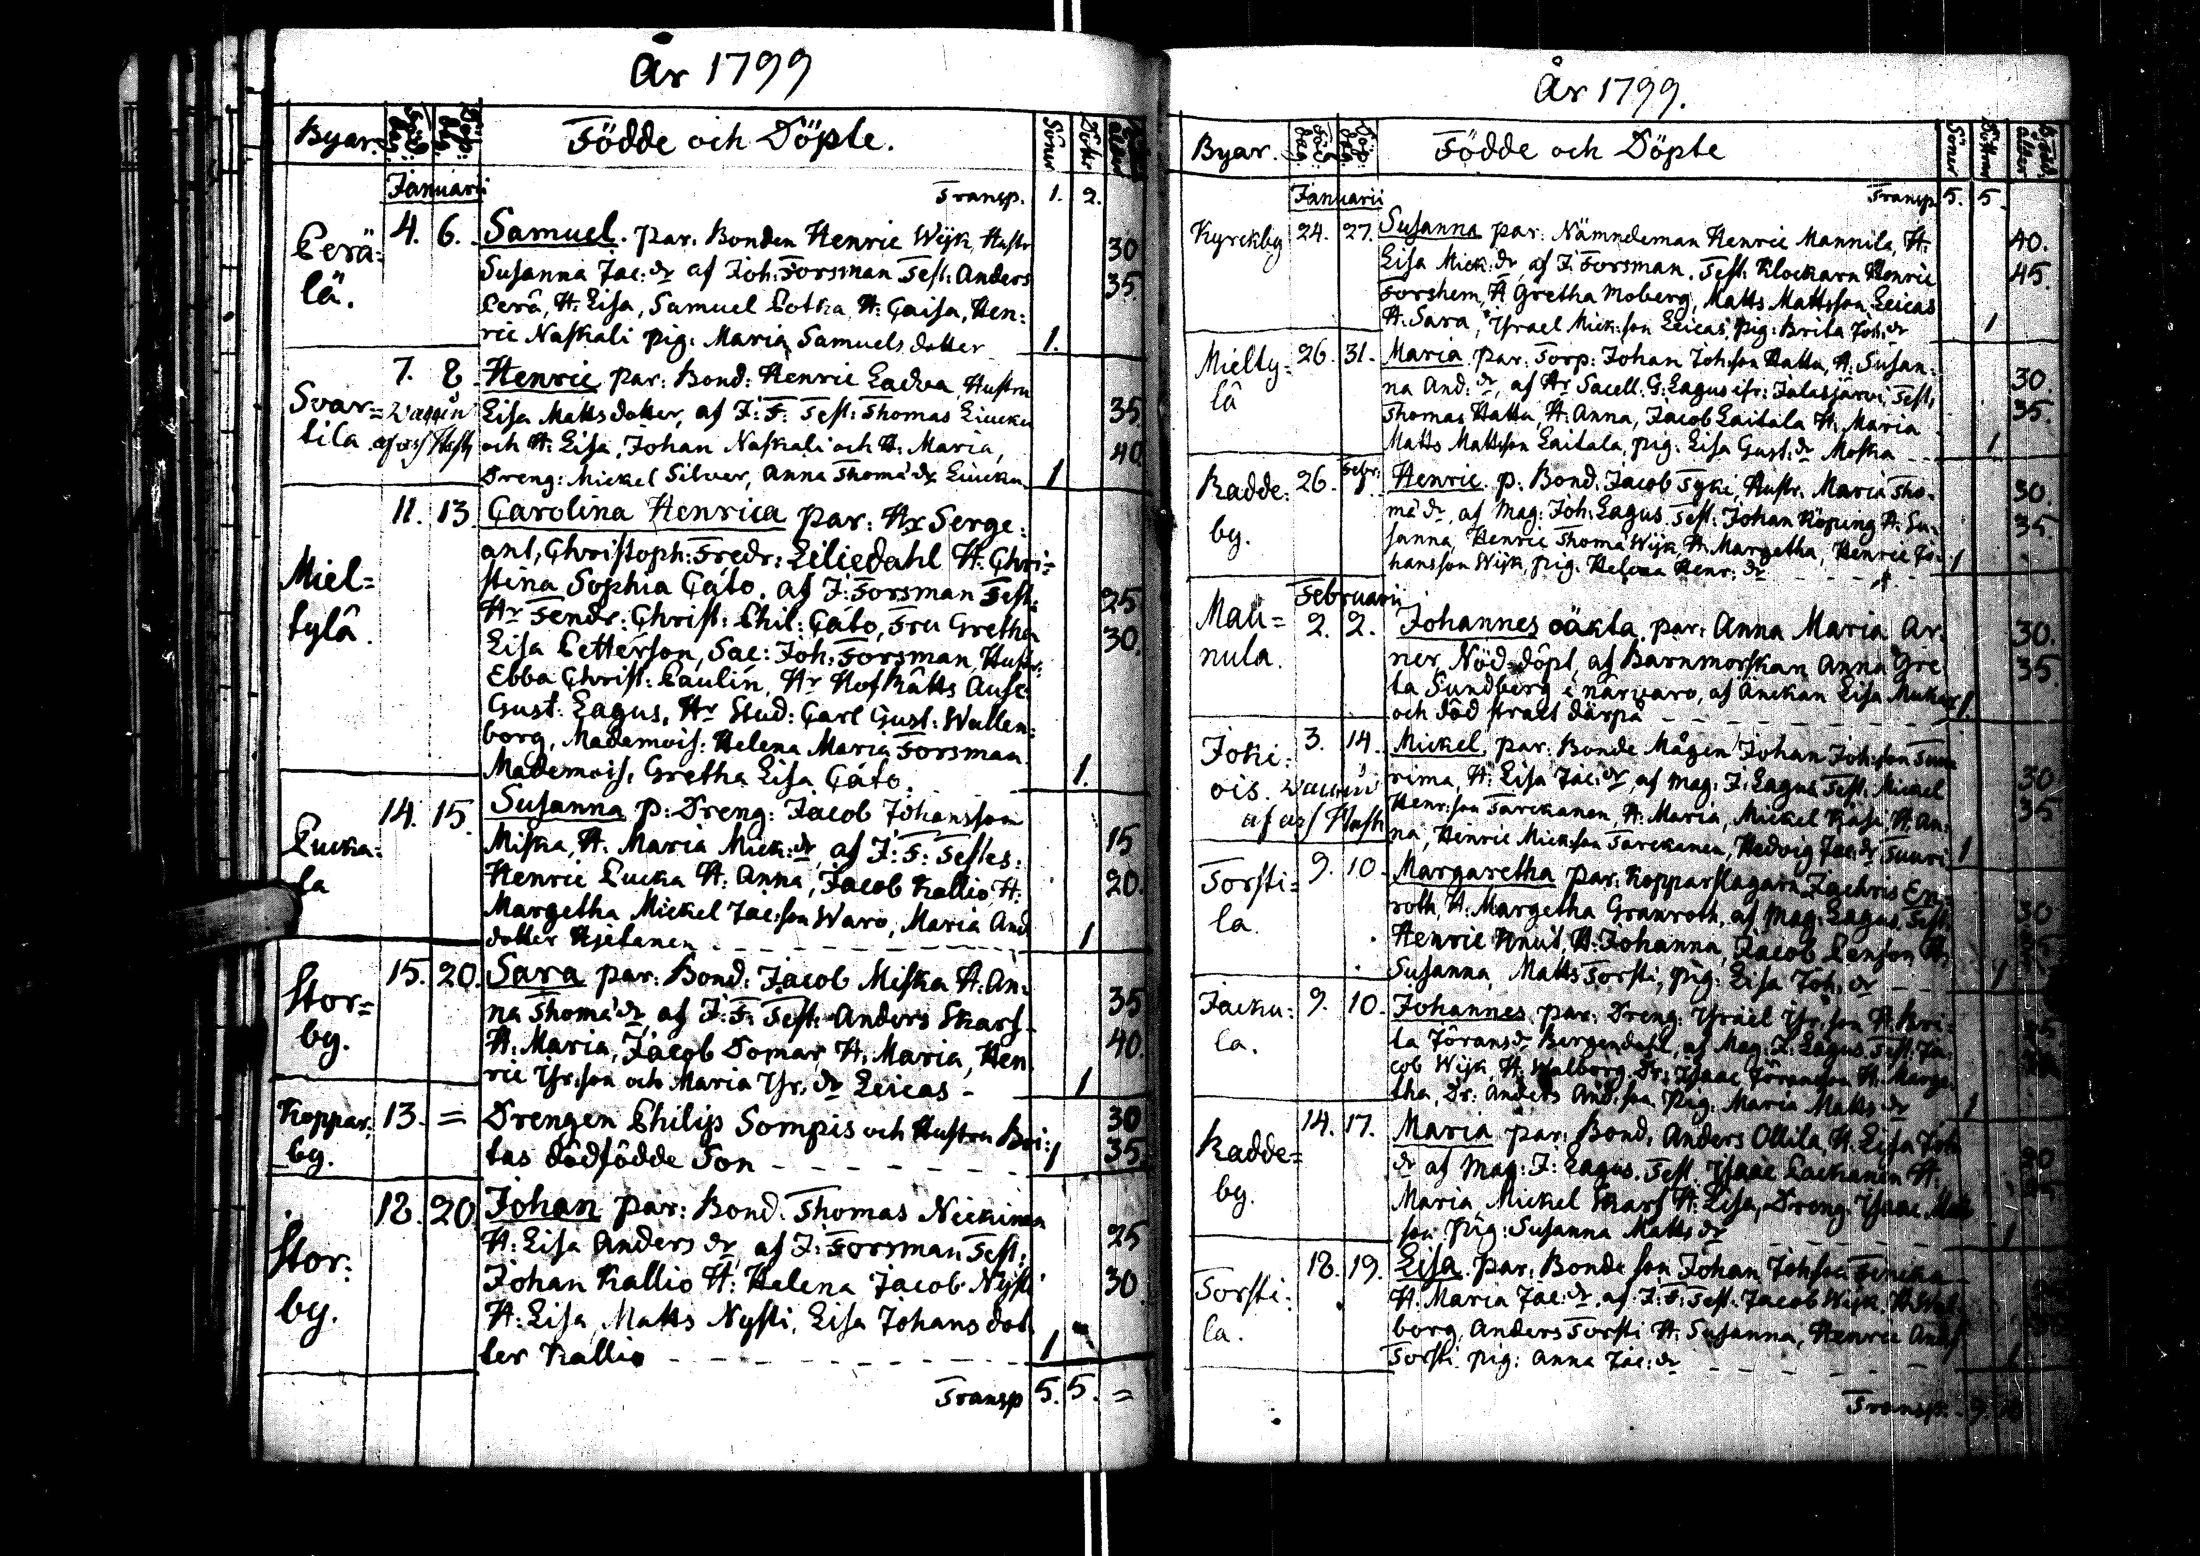 År 1799
Byar. Föd: dag. Döp: dag. Födde och Döpte. Söner Dötr
Januarii Transp. 1. 2.
Perä= lä. 4. 6. Samuel. par. Bonden Henric Wijk, Hustr
Susanna Jac: dr af Joh: Forsman Test: Anders 30
Perä, H. Lisa, Samuel Potka, H: Caisa, Hen: 35.
ric Naskali pig: Maria Samuels dotter 1.
Svar= tila 7. 8. Henric par: Bond: Henric Ladva, Hustru
Lisa Mattsdotter, af J: F: Test: Thomas Liucku 35
och H: Lisa, Johan Naskali och H: Maria, 40.
Dreng: Mickel Silver, Anna Thoma dr Liucku 1
Miel= tylä. 11. 13. Carolina Henrica par: Hr Serge:
ant, Christoph: Fredr: Liliedahl H: Chri=
stina Sophia Cáto. af J: Forsman Test: 25
Hr Fendr: Christ: Phil: Cáto, Fru Gretha 30.
Lisa Petterson, Sac: Joh: Forsman, Hustr:
Ebba Christ: Paulin, Hr HofRätts Ausc:
Gust: Lagus, Hr Stud: Carl Gust: Wallen=
borg, Mademois: Helena Maria Forsman
Mademois, Gretha Lisa Cáto. 1.
Pucka= la 14. 15. Susanna p: Dreng: Jacob Johansson
Miska, H. Maria Mick: dr, af J: F: Testes: 15
Henric Pucka H: Anna, Jacob Kallio H: 20.
Margetha Mickel Jac:son Waro, Maria And
dotter Hjetanen 1
Stor= by. 15. 20. Sara par: Bond: Jacob Miska H. An:
na Thoma dr af J: F: Test: Anders Skarf 35
H. Maria, Jacob Domar H. Maria, Hen 40.
ric Isr:son och Maria Isr: dr Leicas - 1
Koppar: by. 13. = Drengen Philip Sompis och Hustru Bri: 30
tas dödfödde Son 1 35.
Stor: by. 18. 20 Johan par: Bond. Thomas Neckinen
H: Lisa Anders dr, af J: Forsman Test: 25
Johan Kallio H: Helena Jacob Nysti 30
H: Lisa, Matts Nysti, Lisa Johans dot
ter Kallio 1
Transp 5. 5. =
År 1799.
Byar. Föd: dag Döp: dag. Födde och Döpte Söner Döttrar
Januarii Transp 5. 5.
Kyrckby 24. 27. Susanna par: Nämndeman Henric Mannila, H. 40.
Lisa Mick: dr, af J. Forsman. Test: Klockarn Henric 45.
Forshem, H Gretha Moberg, Matts Mattsson Leicas
H. Sara, Israel Mick:son Leicas, Pig: Brita Joh: dr 1
Mielty= lä 26. 31. Maria par: Torp: Johan Joh:son Hattu, H: Susan:
na And: dr, af Hr Sacell. G: Lagus ifr: Jalasjärvi, Test: 30.
Thomas Hattu, H. Anna, Jacob Laitala H. Maria 35.
Matts Mattsson Laitala, pig: Lisa Gust: dr Moska 1
Radde: by. 26. Febr: Henric p: Bond: Jacob Tyki, Hustr: Maria Tho- 30.
ma dr, af Mag: Joh: Lagus Test: Johan Köping H: Su= 35.
sanna, Henric Thoma Wijk, H: Margetha, Henric Jo=
hansson Wijk, pig: Helena Henr: dr 1
Februarii
Mau= nula. 2. 2. Johannes oäkta. par: Anna Maria Ar= 30.
ner, Nöd-döpt, af Barnmorskan Anna Gre 35.
ta Sundberg i närvaro, af Änckan Lisa
och död strart därpå 1.
Joki: ois. 3. 14. Mickel, par: Bonde Mågen Johan Joh:son
rima, H. Lisa Jac: dr, af Mag: J: Lagus Test: Mickel 30
Henr:son Tarckanen, H. Maria, Mickel Käsi, H: An: 35
na, Henric Mick:son Tarckanen, Hedvig Jac: dr 1
Torsti= la. 9. 10. Margaretha par: Kopparslagarn Zachris En=
roth, H. Margetha Granroth, af Mag: Lagus, Test: 30
Henric Knut, H: Johanna, Jacob Penson H: 35
Susanna, Matts Torsti, Pig: Lisa Joh: dr 1
Jacku: la. 9. 10. Johannes par: Dreng: Israel Isr:son H. Bri:
ta Jörans dr Bergendahl, af Mag: J: Lagus, Test: Ja:
cob Wijk, H. Walborg, Dr: Isaac Jöransson H: Marge:
tha, Dr: Anders And:son, Pig: Maria Matts dr 1
Radde= by. 14. 17. Maria par: Bond. Anders Ollila, H. Lisa Joh
dr af Mag: J: Lagus. Test: Isaac Lackanen H:
Maria, Mickel Skarf H: Lisa, Dreng: Isaac
son Pig: Susanna Matts dr 1
Torsti: la. 18. 19. Lisa. par: Bonde son Johan Joh:son
H. Maria Jac: dr, af J: F: Test: Jacob Wijk, H: Wal:
borg, Anders Torsti H. Susanna, Henric
Torsti pig: Anna Jac: dr 1
Transp. 9.